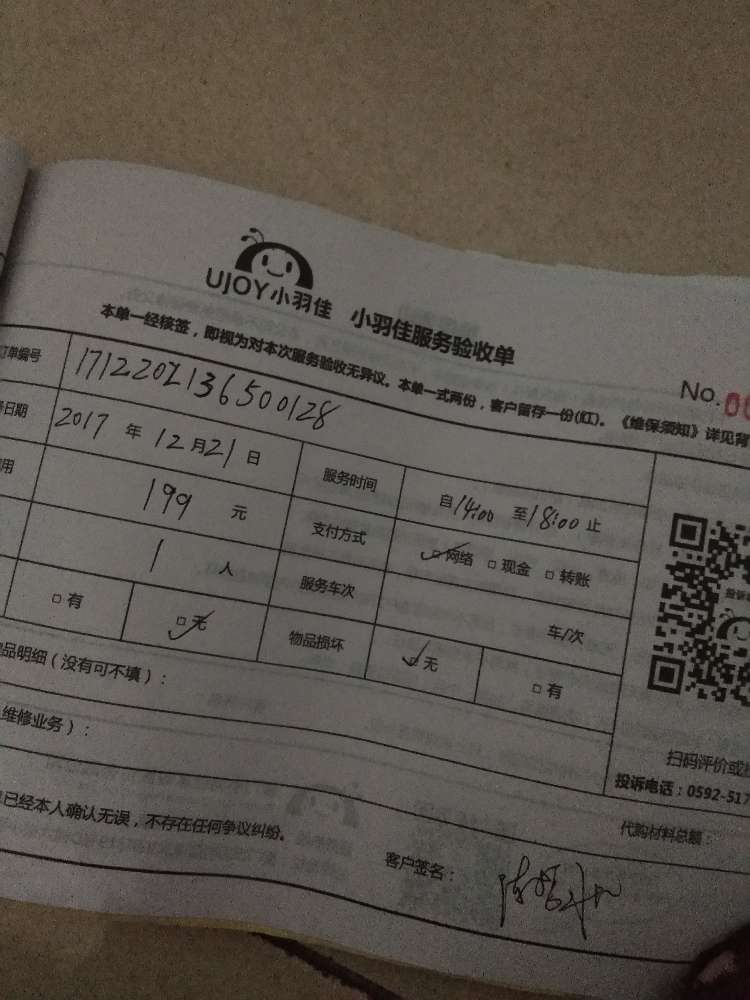 UJOY小羽佳 小羽佳服务验收单
No.
本单一经核签，即视为对本次服务验收无异议。本单一式两份，客户留存一份(红)。《维保须知》详见背
订单编号 1712202136500128
日期 2017 年 12 月 21 日 服务时间 自 14:00 至 18:00 止
用 199 元 支付方式 ☑网络 □现金 □转账
1 人 服务车次 车/次
□有 ☑无 物品损坏 ☑无 □有
品明细（没有可不填）：
维修业务）：
扫码评价或
投诉电话：0592-517
已经本人确认无误，不存在任何争议纠纷。
代购材料总额：
客户签名：